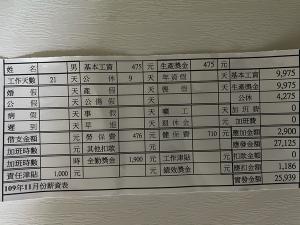 姓 名 男 基本工資 475 元 生產獎金 475 元 基本工資 9,975
工作天數 21 天 公 休 9 天 年資假 天 生產獎金 9,975
婚 假 天 產 假 天 喪 假 天 公休 4,275
公 假 天 公傷假 天 加班費 0
病 假 天 事 假 天 職 工 加班費 0
遲 到 天 早 天 退休金 應加金額 2,900
借支金額 元 勞保費 476 元 健保費 710 元 應發金額 27,125
加班時數 時 其他扣款 元 扣款金額 0
加班時數 時 全勤獎金 1,900 元 工作津貼 元 應扣金額 1,186
責任津貼 1,000 元 元 績效獎金 元 實發金額 25,939
109年11月份薪資表